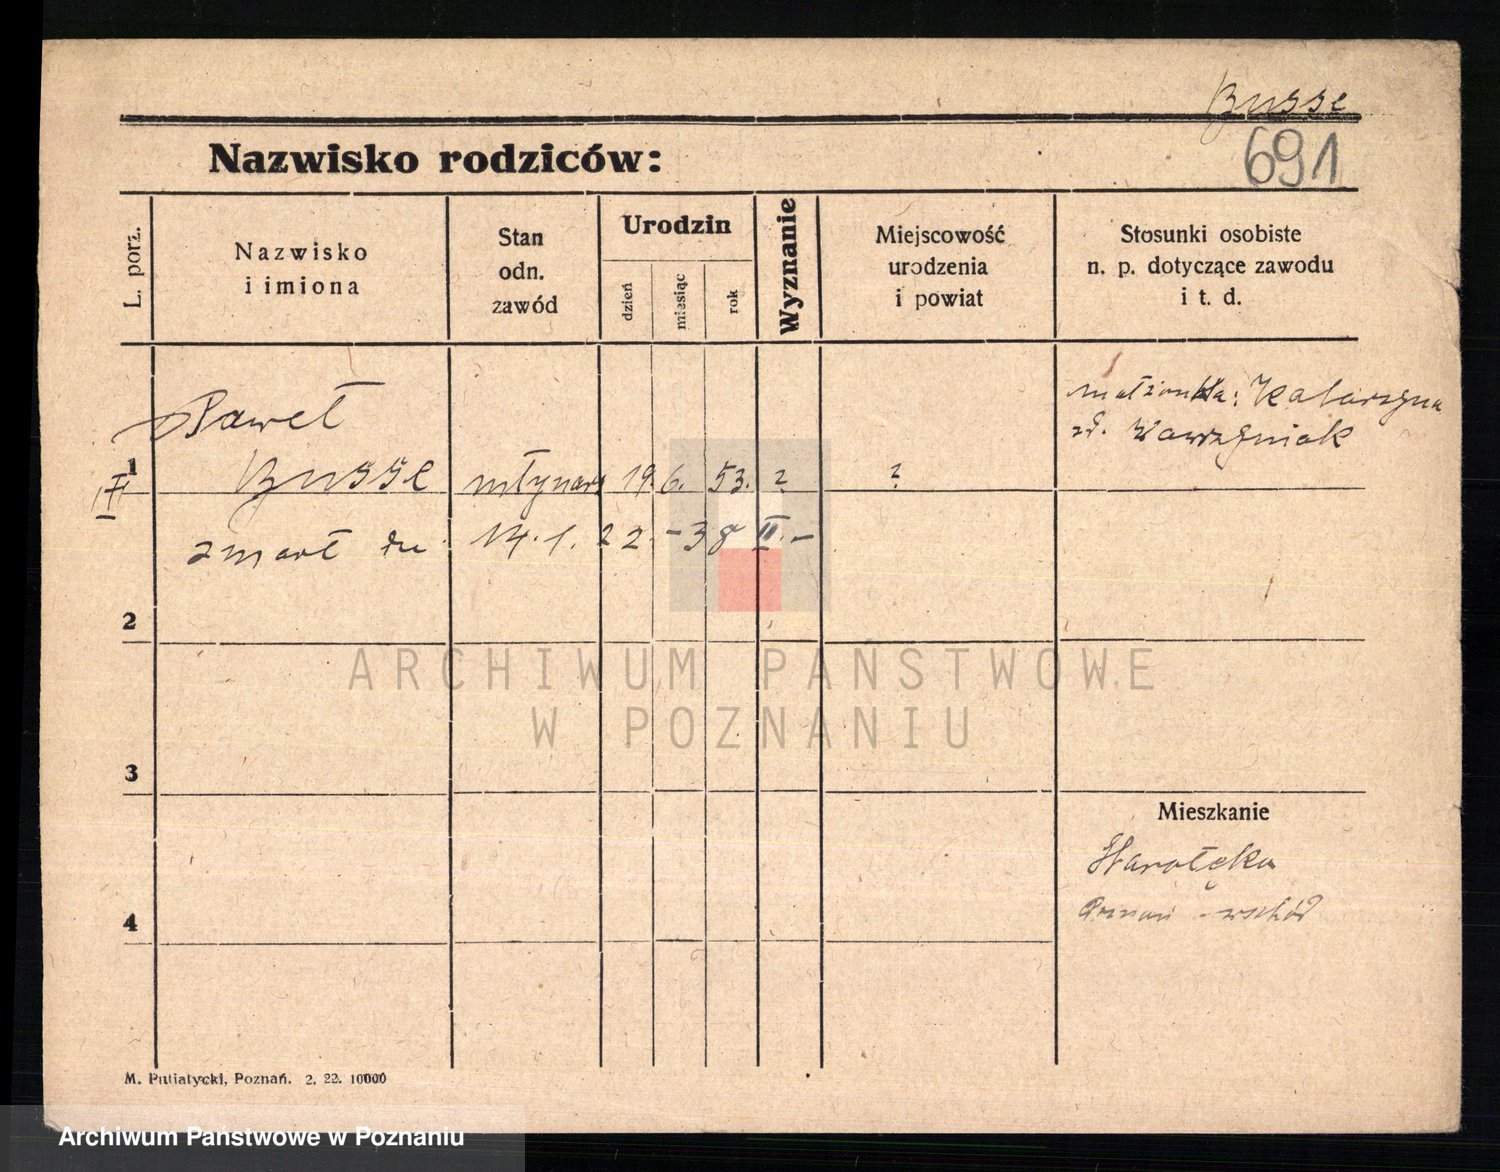 Busse
691
Nazwisko rodziców:
L. porz.
Nazwisko
i imiona
Stan
odn.
zawód
Urodzin
dzień
miesiąc
rok
Wyznanie
Miejscowość
urodzenia
i powiat
Stosunki osobiste
n. p. dotyczące zawodu
i t. d.
1
Paweł
Busse młynarz 19. 6. 53. ? ?
małżonka: Katarzyna
zd. Wawrzyniak
zmarł dn 14. 1. 22. - 38 II. -
2
3
4
Mieszkanie
Starołęka
Poznań - wschód
ARCHIWUM PAŃSTWOWE
W POZNANIU
M. Putiatycki, Poznań. 2. 22. 10000
Archiwum Państwowe w Poznaniu